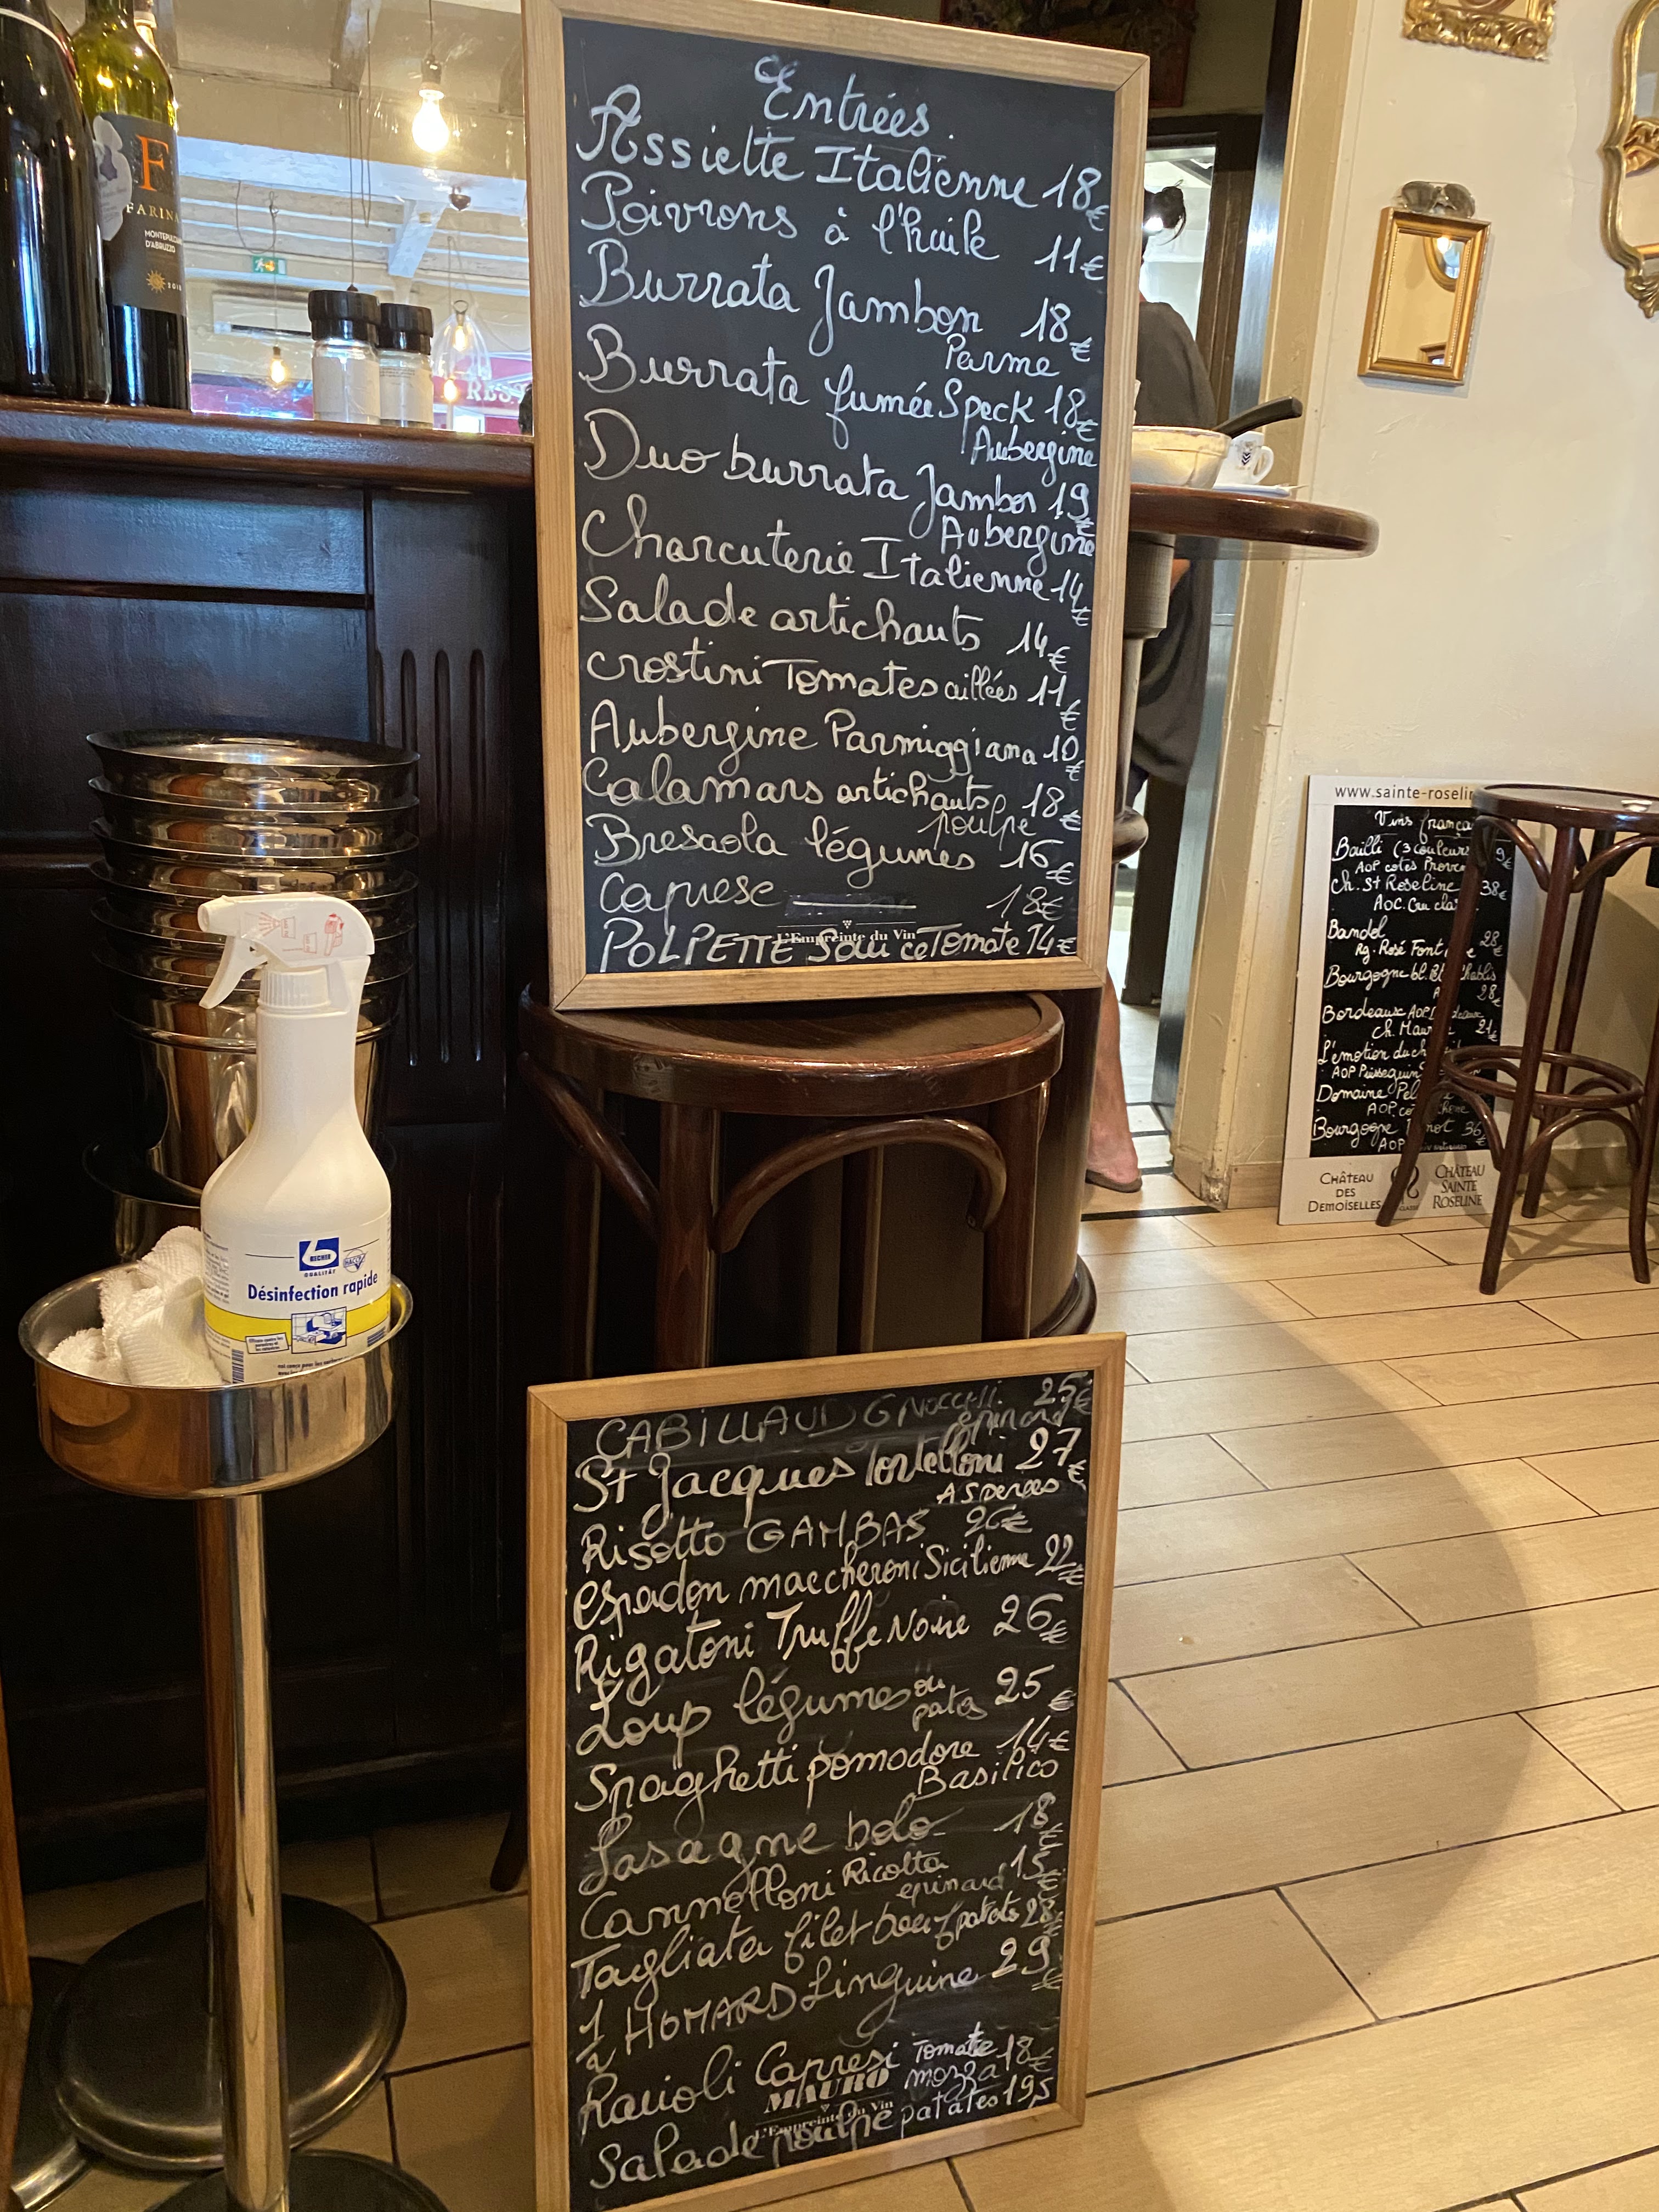 Entrées.
Assiette Italienne 18€
Poivrons à l'huile 11€
Burrata Jambon 18€
Parme
Burrata fumée Speck 18€
Aubergine
Duo burrata Jambon 19€
Aubergine
Charcuterie Italienne 14€
Salade artichauts 14€
crostini Tomates aillées 11€
Aubergine Parmiggiana 10€
Calamars artichauts 18€
poulpe
Bresaola légumes 16€
Caprese 18€
L'Empreinte du Vin
POLPETTE Sauce Tomate 14€
CABILLAUD GNOCCHI 25€
épinard
St Jacques tortelloni 27€
ASPERGES
Risotto GAMBAS 26€
espadon maccheroni Sicilienne 22€
Rigatoni Truffe Noire 26€
Loup légumes ou pates 25€
Spaghetti pomodore 14€
Basilico
Lasagne bolo 18€
Cannelloni Ricotta 15€
épinard
Tagliata filet boeuf patates 28€
1/2 HOMARD Linguine 29€
Ravioli Capresi Tomate 18€
mozza
MAURO
L'Empreinte du Vin
Salade poulpe patates 19,5
F
FARINA
MONTEPULCIANO
D'ABRUZZO
BECHER
QUALITÄT
HACCP
Désinfection rapide
www.sainte-roselin
Vins frança
Bailli (3 couleurs 9€
AOP cotes Proven
Ch. St Roseline 38€
AOC. Cru cla
Bandol
Rg. Rosé Font 28€
Bourgogne bl. Chablis
28€
Bordeaux AOP
Ch. Mau 21€
L'émotion du ch
AOP Puisseguin
Domaine Pel
AOP co
Bourgogne 36€
AOP
CHÂTEAU
DES
DEMOISELLES
CHÂTEAU
SAINTE
ROSELINE